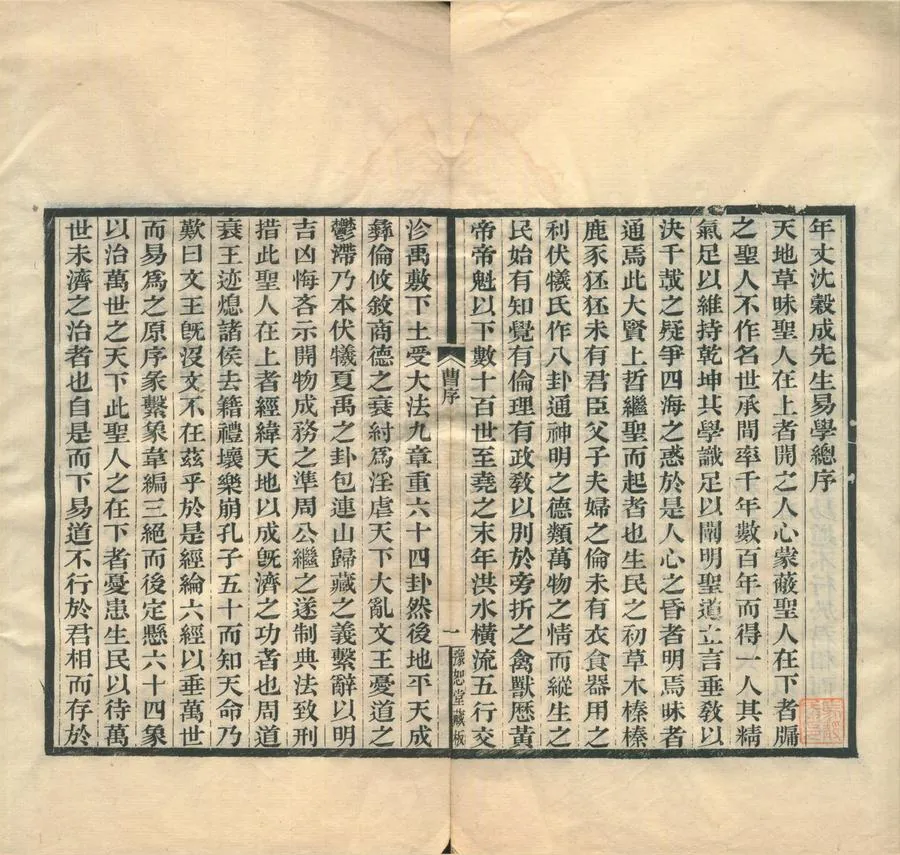 年丈沈穀成先生易學總序
天地草昧聖人在上者開之人心蒙蔽聖人在下者牖
之聖人不作名世承間率千年數百年而得一人其精
氣足以維持乾坤其學識足以闡明聖道立言垂敎以
決千蔵之疑爭四海之惑於是人心之昏者明焉昧者
通焉此大賢上哲繼聖而起者也生民之初草木榛榛
鹿豕狉狉未有君臣父子夫婦之倫未有衣食器用之
利伏犧氏作八卦通神明之德類萬物之情而縱生之
民始有知覺有倫理有政敎以別於旁折之禽獸歷黃
帝帝魁以下數十百世至堯之末年洪水橫流五行交
曹序
一
豫恕堂藏板
沴禹敷下土受大法九章重六十四卦然後地平天成
彝倫攸敘商德之衰紂爲淫虐天下大亂文王憂道之
鬱滯乃本伏犧夏禹之卦包連山歸藏之義繫辭以明
吉凶悔吝示開物成務之準周公繼之遂制典法致刑
措此聖人在上者經緯天地以成旣濟之功者也周道
衰王迹熄諸侯去籍禮壞樂崩孔子五十而知天命乃
歎曰文王旣沒文不在茲乎於是經綸六經以垂萬世
而易爲之原序彖繫象韋編三絕而後定懸六十四象
以治萬世之天下此聖人之在下者憂患生民以待萬
世未濟之治者也自是而下易道不行於君相而存於